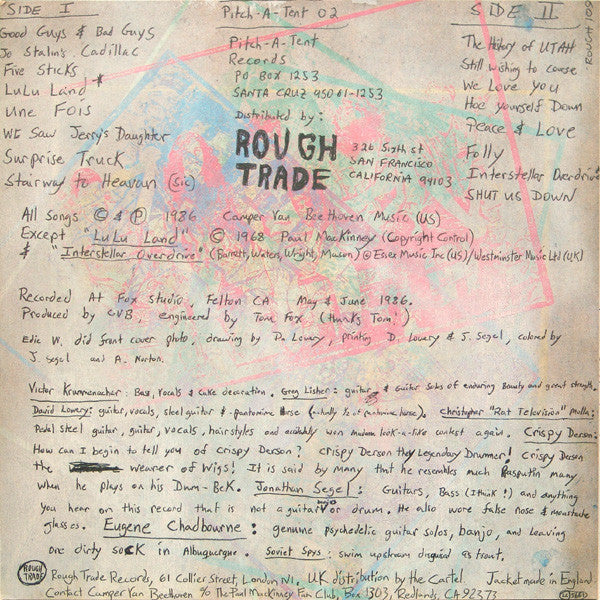 SIDE I
Good Guys & Bad Guys
Jo Stalin's Cadillac
Five Sticks
LuLu Land *
Une Fois
We Saw Jerry's Daughter
Surprise Truck
Stairway to Heavan (sic)
Pitch-A-Tent 02
Pitch-A-Tent
Records
PO Box 1253
SANTA CRUZ 95061-1253
Distributed by:
ROUGH
TRADE
326 Sixth st
SAN FRANCISCO
CALIFORNIA 94103
SIDE II
ROUGH 109
The History of UTAH
Still wishing to course
We Love you
Hoe yourself Down
Peace & Love
Folly
Interstellar Overdrive
SHUT US DOWN
All Songs © & ℗ 1986 Camper Van Beethoven Music (US)
Except "LuLu Land" © 1968 Paul MacKinney (Copyright Control)
& "Interstellar Overdrive" (Barrett, Waters, Wright, Mason) © Essex Music Inc (US)/Westminster Music Ltd (UK)
Recorded At Fox Studio, Felton CA May & June 1986.
Produced by CVB, engineered by Tom Fox (thanks Tom!)
Edie W. did front cover photo, drawing by Da. Lowery, printing D. Lowery & J. Segel, colored by
J. Segel and A. Norton.
Victor Krummenacher: Bass, Vocals & Cake decoration. Greg Lisher: guitar & Guitar Solos of enduring Beauty and great strength.
David Lowery: guitar, vocals, steel guitar & pantomime Horse (actually ½ of pantomime horse). Christopher "Rat Television" Molla:
Pedal steel guitar, guitar, vocals, hairstyles and accidentally won madam look-a-like contest again. Crispy Derson:
How can I begin to tell you of crispy Derson? Crispy Derson the Legendary Drummer! Crispy Derson
the wearer of Wigs! It is said by many that he resembles much Rasputin many
when he plays on his Drum-Bek. Jonathan Segel: Guitars, Bass (I think!) and anything
you hear on this record that is not a guitar banjo or drum. He also wore false nose & moustache
glasses. Eugene Chadbourne: genuine psychedelic guitar solos, banjo, and leaving
one dirty sock in Albuquerque. Soviet Spys: swim upstream disguised as trout.
ROUGH
TRADE
Rough Trade Records, 61 Collier Street, London N1. UK distribution by the Cartel. Jacket made in England
Contact Camper Van Beethoven % The Paul MacKinney Fan Club, Box 1303, Redlands, CA 92373